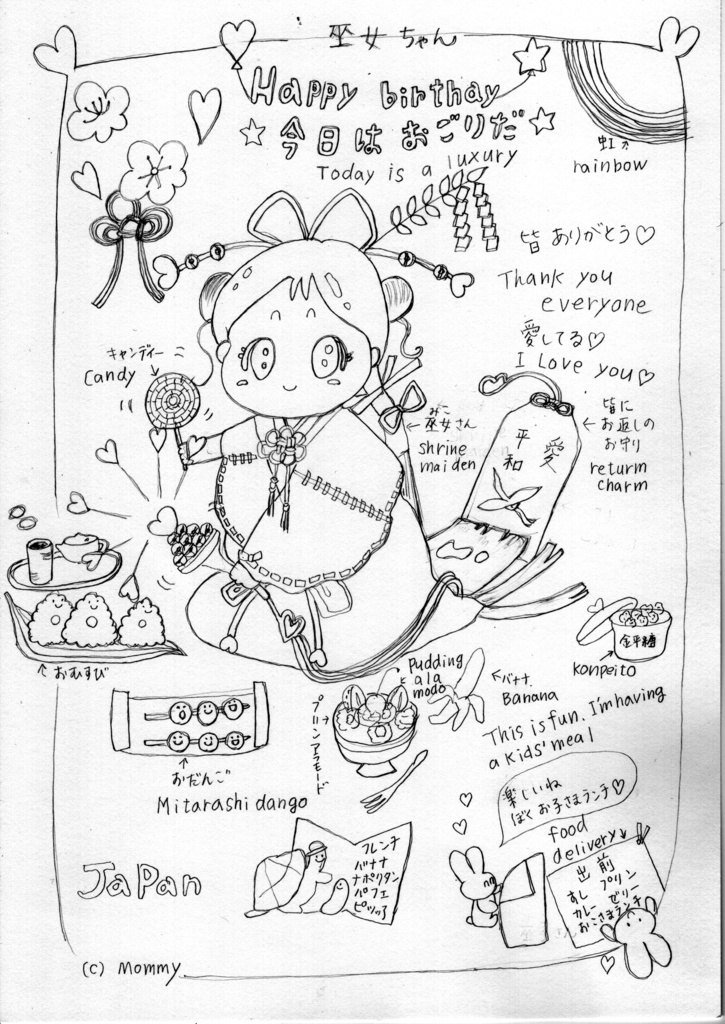 巫女ちゃん
Happy birthday
今日は おごりだ
Today is a luxury
虹
rainbow
皆 ありがとう♡
Thank you
everyone
愛してる♡
I Love you♡
キャンディー
Candy
みこ
巫女さん
shrine
maiden
平和
愛
皆に
お返しの
お守り
return
charm
おむすび
金平糖
Konpeito
Pudding
a la
modo
プリンアラモード
バナナ
Banana
This is fun. I'm having
a kids' meal
おだんご
Mitarashi dango
楽しいね
ぼく お子さまランチ♡
food
delivery
出前
すし プリン
カレー ゼリー
おこさまランチ
フレンチ
バナナ
ナポリタン
パフェ
JaPan
(c) Mommy